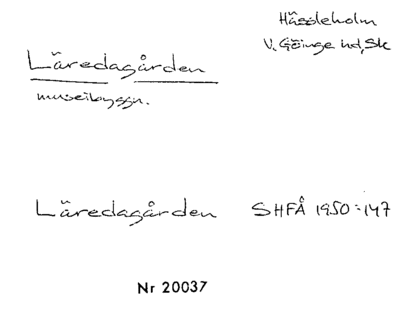 Hässleholm
V. Göinge hd, Sk
Läredagården
museibyggn.
Läredagården SHFÅ 1950:147
Nr 20037